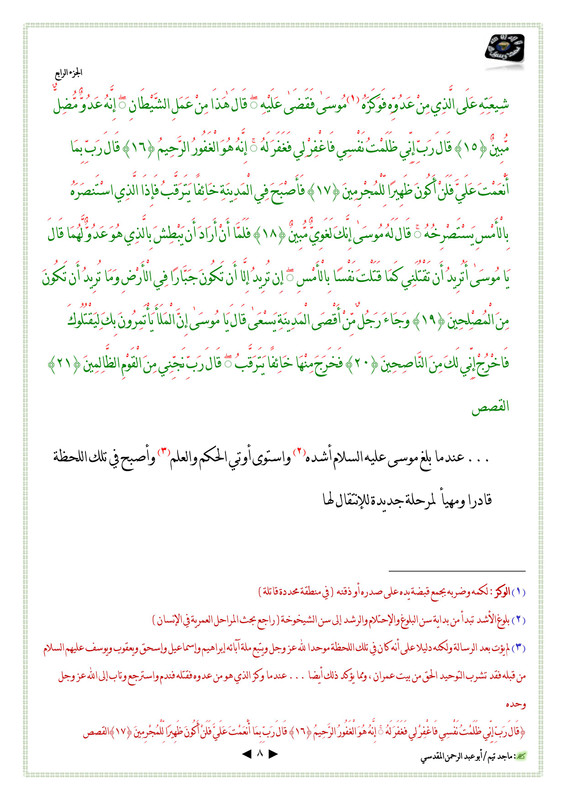 الجزء الرابع
شِيعَتِهِ عَلَى الَّذِي مِنْ عَدُوِّهِ فَوَكَزَهُ (١) مُوسَىٰ فَقَضَىٰ عَلَيْهِ ۖ قَالَ هَٰذَا مِنْ عَمَلِ الشَّيْطَانِ ۖ إِنَّهُ عَدُوٌّ مُّضِلٌّ
مُّبِينٌ ﴿١٥﴾ قَالَ رَبِّ إِنِّي ظَلَمْتُ نَفْسِي فَاغْفِرْ لِي فَغَفَرَ لَهُ ۚ إِنَّهُ هُوَ الْغَفُورُ الرَّحِيمُ ﴿١٦﴾ قَالَ رَبِّ بِمَا
أَنْعَمْتَ عَلَيَّ فَلَنْ أَكُونَ ظَهِيرًا لِّلْمُجْرِمِينَ ﴿١٧﴾ فَأَصْبَحَ فِي الْمَدِينَةِ خَائِفًا يَتَرَقَّبُ فَإِذَا الَّذِي اسْتَنصَرَهُ
بِالْأَمْسِ يَسْتَصْرِخُهُ ۚ قَالَ لَهُ مُوسَىٰ إِنَّكَ لَغَوِيٌّ مُّبِينٌ ﴿١٨﴾ فَلَمَّا أَنْ أَرَادَ أَن يَبْطِشَ بِالَّذِي هُوَ عَدُوٌّ لَّهُمَا قَالَ
يَا مُوسَىٰ أَتُرِيدُ أَن تَقْتُلَنِي كَمَا قَتَلْتَ نَفْسًا بِالْأَمْسِ ۖ إِن تُرِيدُ إِلَّا أَن تَكُونَ جَبَّارًا فِي الْأَرْضِ وَمَا تُرِيدُ أَن تَكُونَ
مِنَ الْمُصْلِحِينَ ﴿١٩﴾ وَجَاءَ رَجُلٌ مِّنْ أَقْصَى الْمَدِينَةِ يَسْعَىٰ قَالَ يَا مُوسَىٰ إِنَّ الْمَلَأَ يَأْتَمِرُونَ بِكَ لِيَقْتُلُوكَ
فَاخْرُجْ إِنِّي لَكَ مِنَ النَّاصِحِينَ ﴿٢٠﴾ فَخَرَجَ مِنْهَا خَائِفًا يَتَرَقَّبُ ۖ قَالَ رَبِّ نَجِّنِي مِنَ الْقَوْمِ الظَّالِمِينَ ﴿٢١﴾
القصص
... عندما بلغ موسى عليه السلام أشده (٢) واستوى أوتي الحكم والعلم (٣) وأصبح في تلك اللحظة
قادرا ومهيأ لمرحلة جديدة للإنتقال لها
(١) الوكز : لكمه وضربه بجمع قبضة يده على صدره أو ذقنه ( في منطقة محددة قاتلة )
(٢) بلوغ الأشد تبدأ من بداية سن البلوغ والإحتلام والرشد إلى سن الشيخوخة ( راجع بحث المراحل العمرية في الإنسان )
(٣) لم يؤت بعد الرسالة ولكنه دليلا على أنه كان في تلك اللحظة موحدا لله عز وجل ويتبع ملة آبائه إبراهيم وإسماعيل وإسحق ويعقوب ويوسف عليهم السلام
من قبله فقد تشرب التوحيد الحق من بيت عمران ، ومما يؤكد ذلك أيضا ... عندما وكز الذي هو من عدوه فقتله فندم واسترجع وتاب إلى الله عز وجل
وحده
﴿قَالَ رَبِّ إِنِّي ظَلَمْتُ نَفْسِي فَاغْفِرْ لِي فَغَفَرَ لَهُ ۚ إِنَّهُ هُوَ الْغَفُورُ الرَّحِيمُ ﴿١٦﴾ قَالَ رَبِّ بِمَا أَنْعَمْتَ عَلَيَّ فَلَنْ أَكُونَ ظَهِيرًا لِّلْمُجْرِمِينَ ﴿١٧﴾ القصص
: ماجد تيم / أبو عبد الرحمن المقدسي ◄ ٨ ►